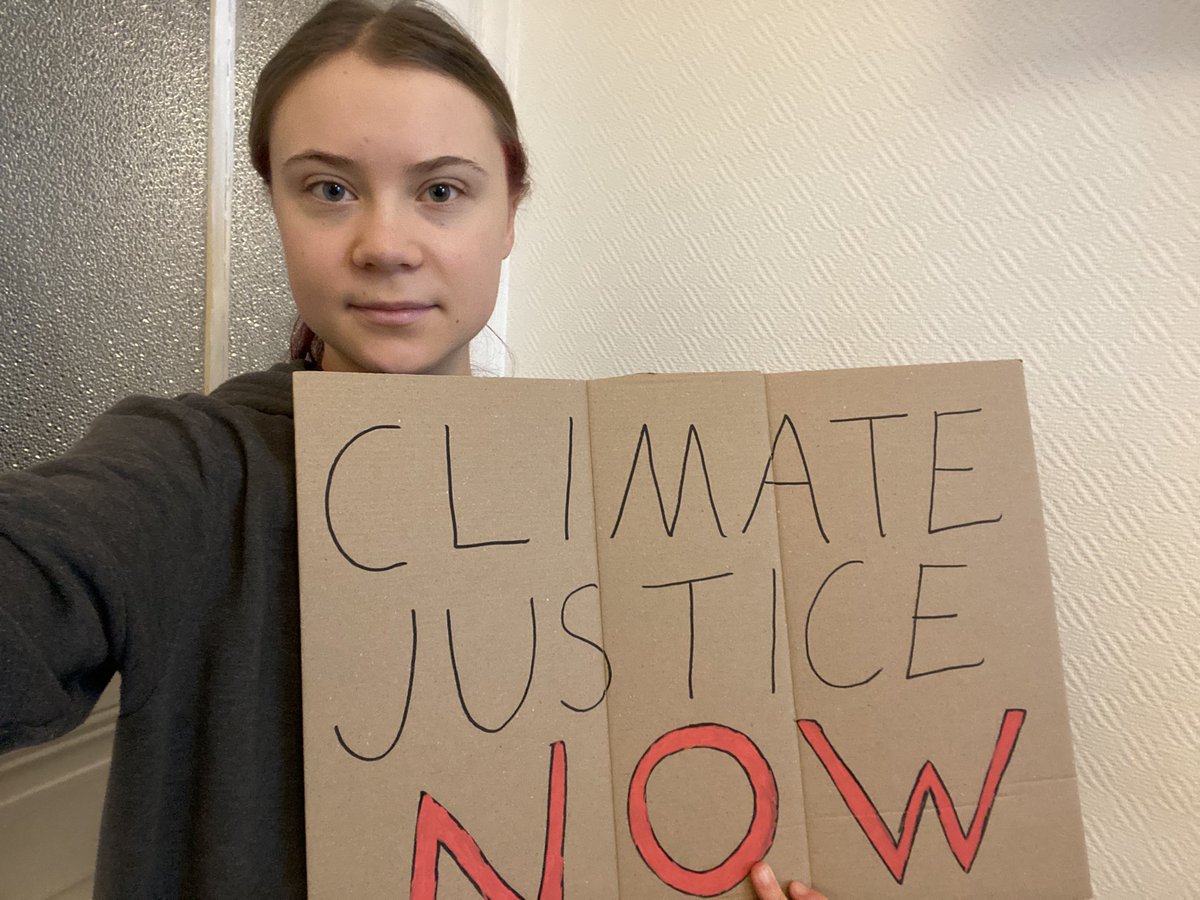 CLIMATE
JUSTICE
NOW